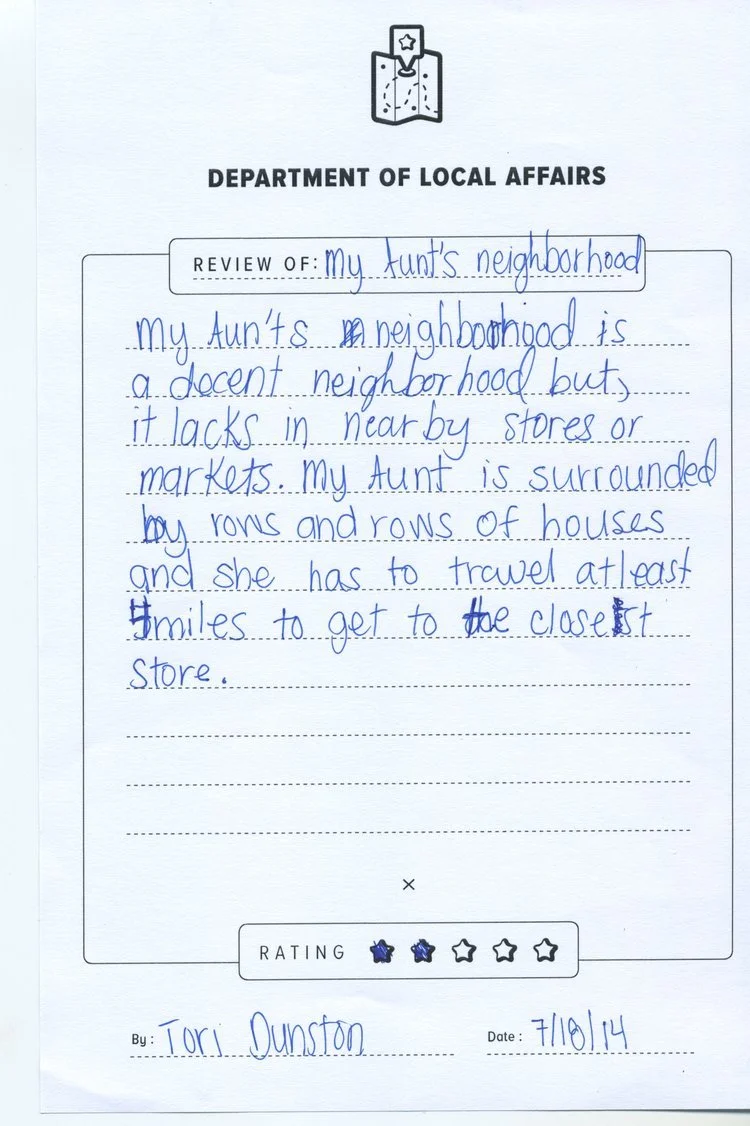 DEPARTMENT OF LOCAL AFFAIRS
REVIEW OF: My Aunt's neighborhood
My Aun'ts neighborhood is
a decent neighborhood but,
it lacks in nearby stores or
markets. My Aunt is surrounded
by rows and rows of houses
and she has to travel atleast
miles to get to the closest
store.
×
RATING
By: Tori Dunston
Date: 7/18/14